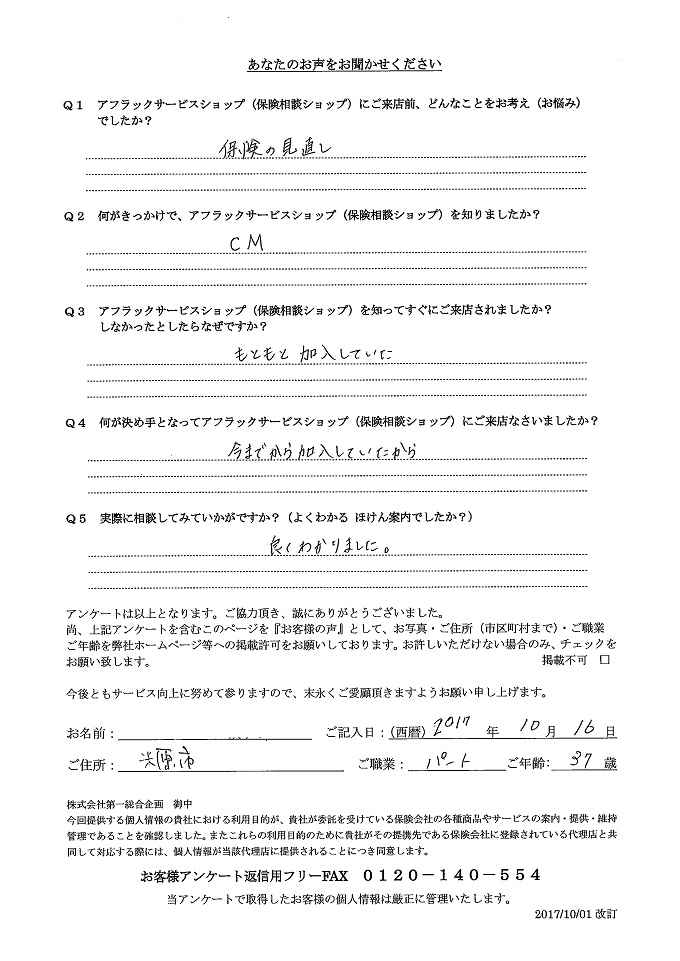 あなたのお声をお聞かせください
Q1 アフラックサービスショップ（保険相談ショップ）にご来店前、どんなことをお考え（お悩み）
でしたか？
保険の見直し
Q2 何がきっかけで、アフラックサービスショップ（保険相談ショップ）を知りましたか？
CM
Q3 アフラックサービスショップ（保険相談ショップ）を知ってすぐにご来店されましたか？
しなかったとしたらなぜですか？
もともと加入していた
Q4 何が決め手となってアフラックサービスショップ（保険相談ショップ）にご来店なさいましたか？
今までから加入していたから
Q5 実際に相談してみていかがですか？（よくわかる ほけん案内でしたか？）
良くわかりました。
アンケートは以上となります。ご協力頂き、誠にありがとうございました。
尚、上記アンケートを含むこのページを『お客様の声』として、お写真・ご住所（市区町村まで）・ご職業
ご年齢を弊社ホームページ等への掲載許可をお願いしております。お許しいただけない場合のみ、チェックを
お願い致します。 掲載不可 □
今後ともサービス向上に努めて参りますので、末永くご愛顧頂きますようお願い申し上げます。
お名前： ご記入日：（西暦）2017 年 10 月 16 日
ご住所： 市 ご職業： パート ご年齢： 37 歳
株式会社第一総合企画 御中
今回提供する個人情報の貴社における利用目的が、貴社が委託を受けている保険会社の各種商品やサービスの案内・提供・維持
管理であることを確認しました。またこれらの利用目的のために貴社がその提携先である保険会社に登録されている代理店と共
同して対応する際には、個人情報が当該代理店に提供されることにつき同意します。
お客様アンケート返信用フリーFAX 0120－140－554
当アンケートで取得したお客様の個人情報は厳正に管理いたします。
2017/10/01 改訂